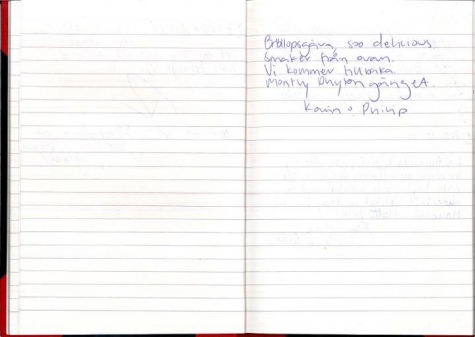 Bröllopsgåva, soo delicious.
Smaker från ovan.
Vi kommer tillbaka.
Monthy Phyton gänget.
Karin o Philip